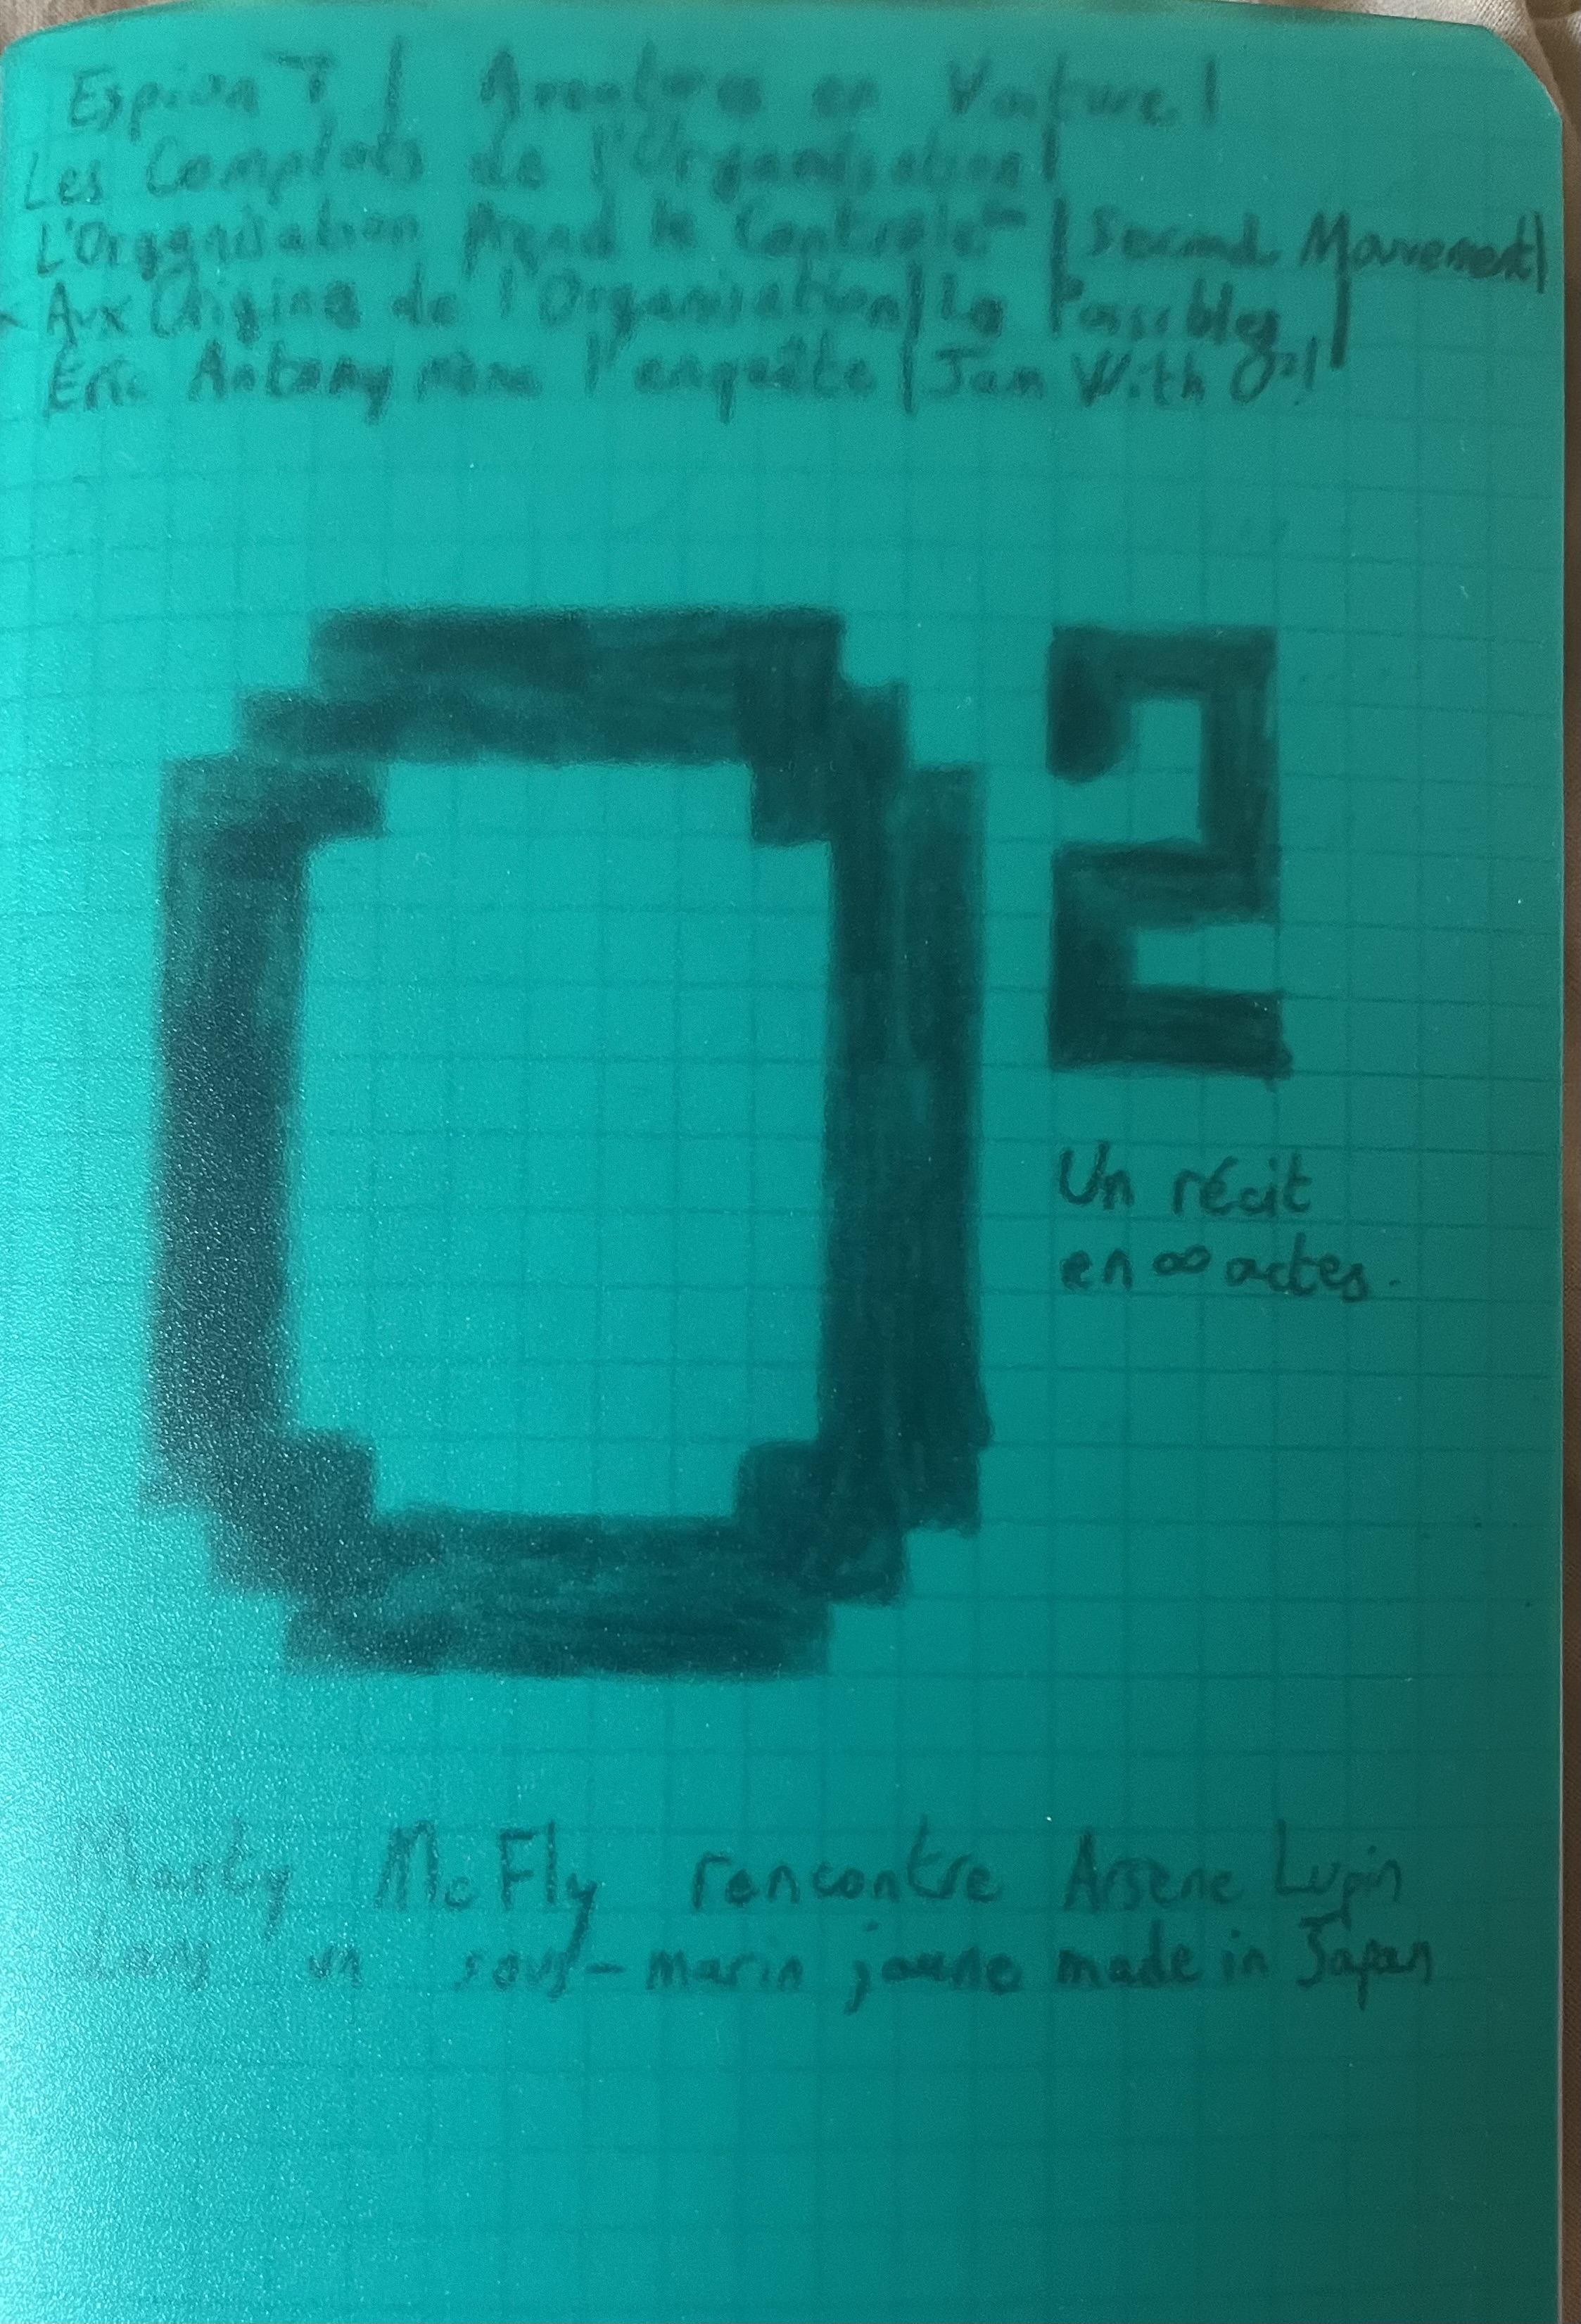 Espion 7 | Aventures en Voiture |
Les Complots de l'Organisation |
L'Organisation Prend le Contrôle | Second Mouvement |
Aux Origine de l'Organisation | Les Possibles |
Eric Antony mène l'enquête | Jam With O² |
O²
Un récit
en ∞ actes.
Marty McFly rencontre Arsene Lupin
dans un sous-marin jaune made in Japan